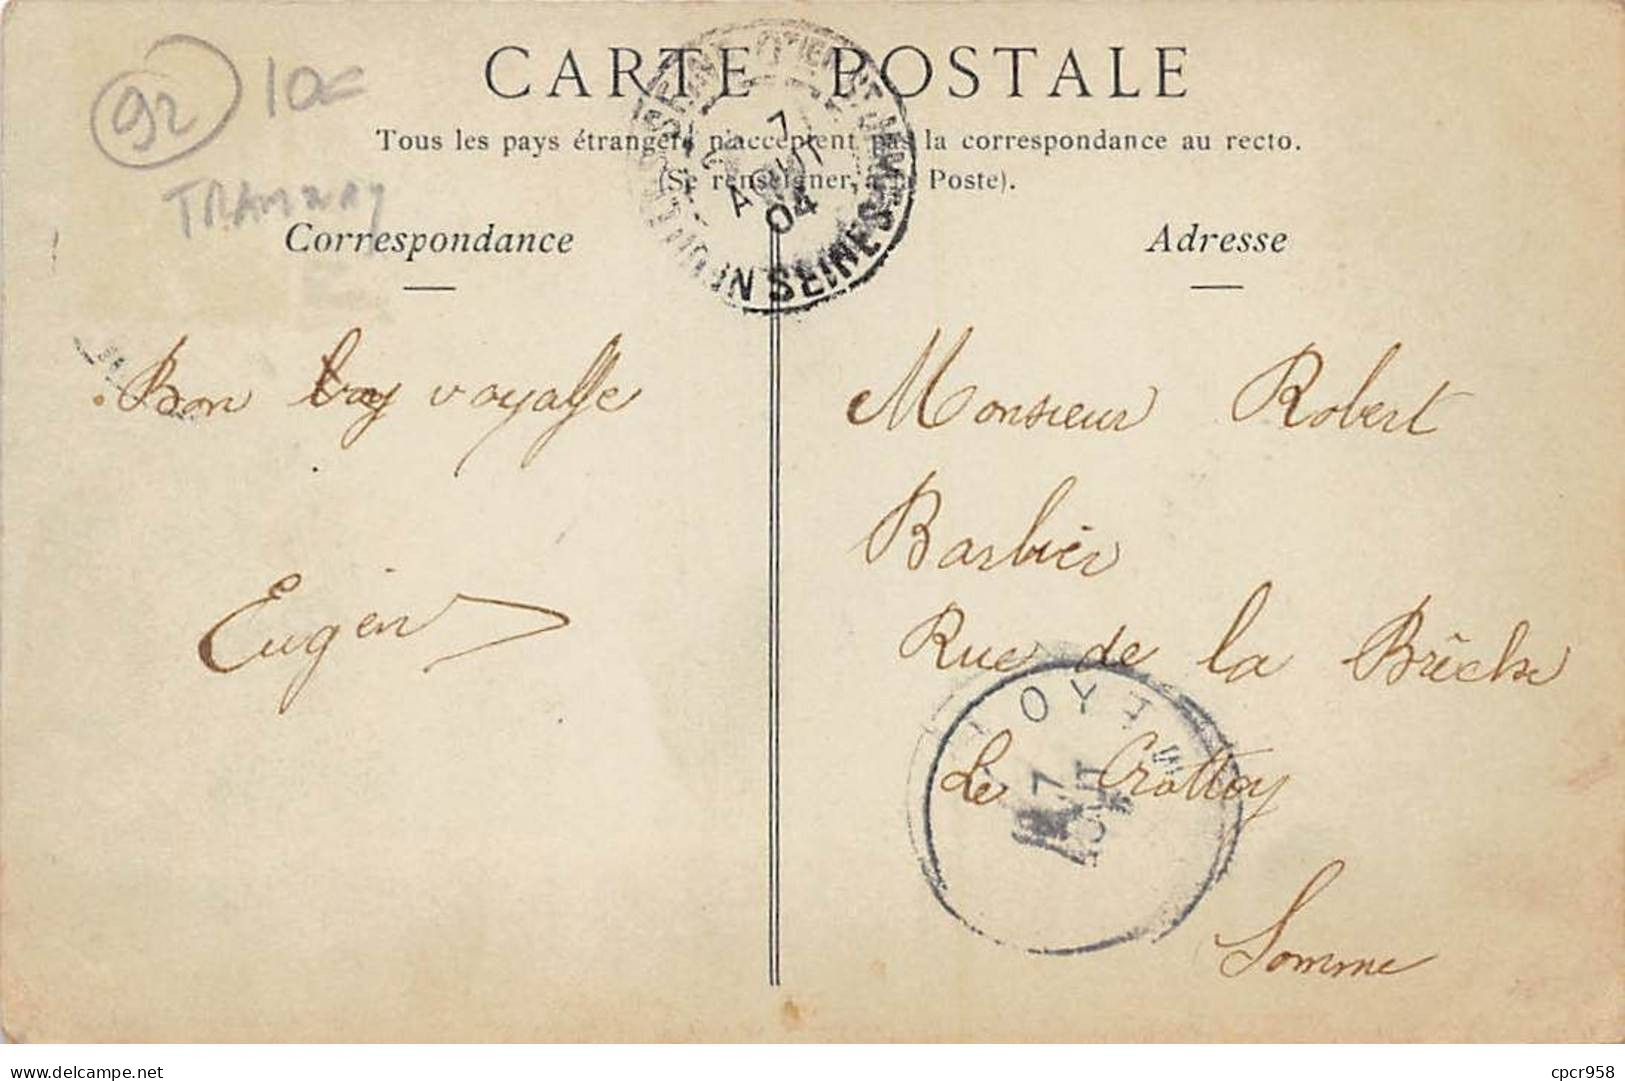 92 10€
TRAMWAY
CARTE POSTALE
Tous les pays étrangers n'acceptent pas la correspondance au recto.
(Se renseigner à la Poste).
7
AOUT
04
SEINE
Correspondance
Adresse
Bon voy voyage
Eugèn
Monsieur Robert
Barbier
Rue de la Brêche
Le Crottoy
Somme
7
AOUT
cpcr958